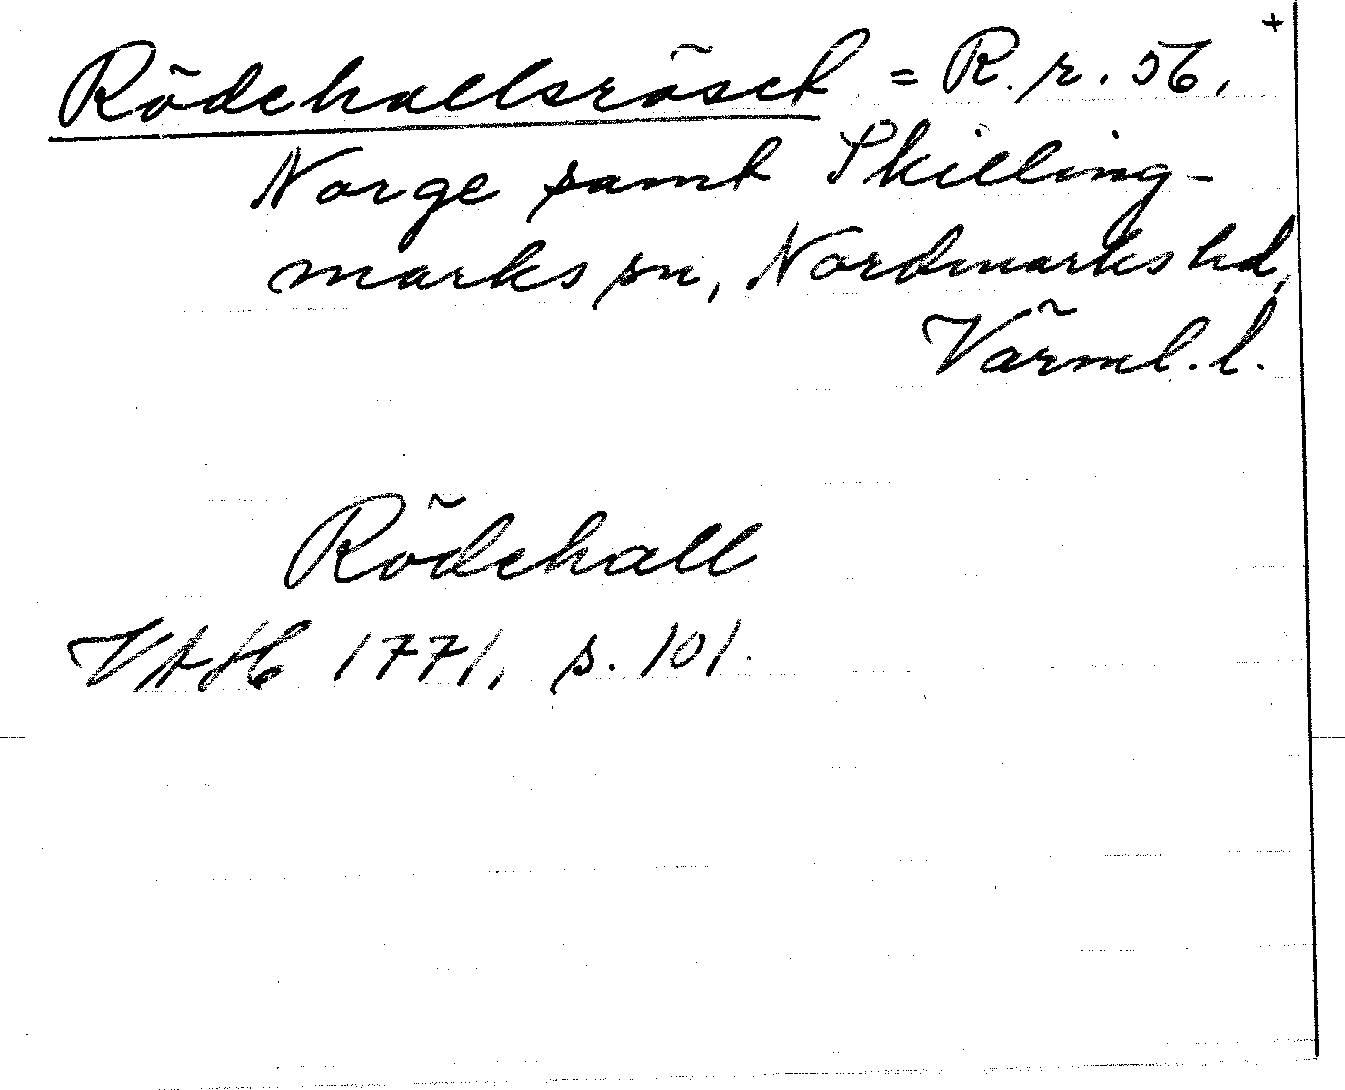 +
Rödehallsröset = R.r. 56,
Norge samt Skilling-
marks sn, Nordmarks hd,
Värml. l.
Rödehall
VAH 1771, s. 101.